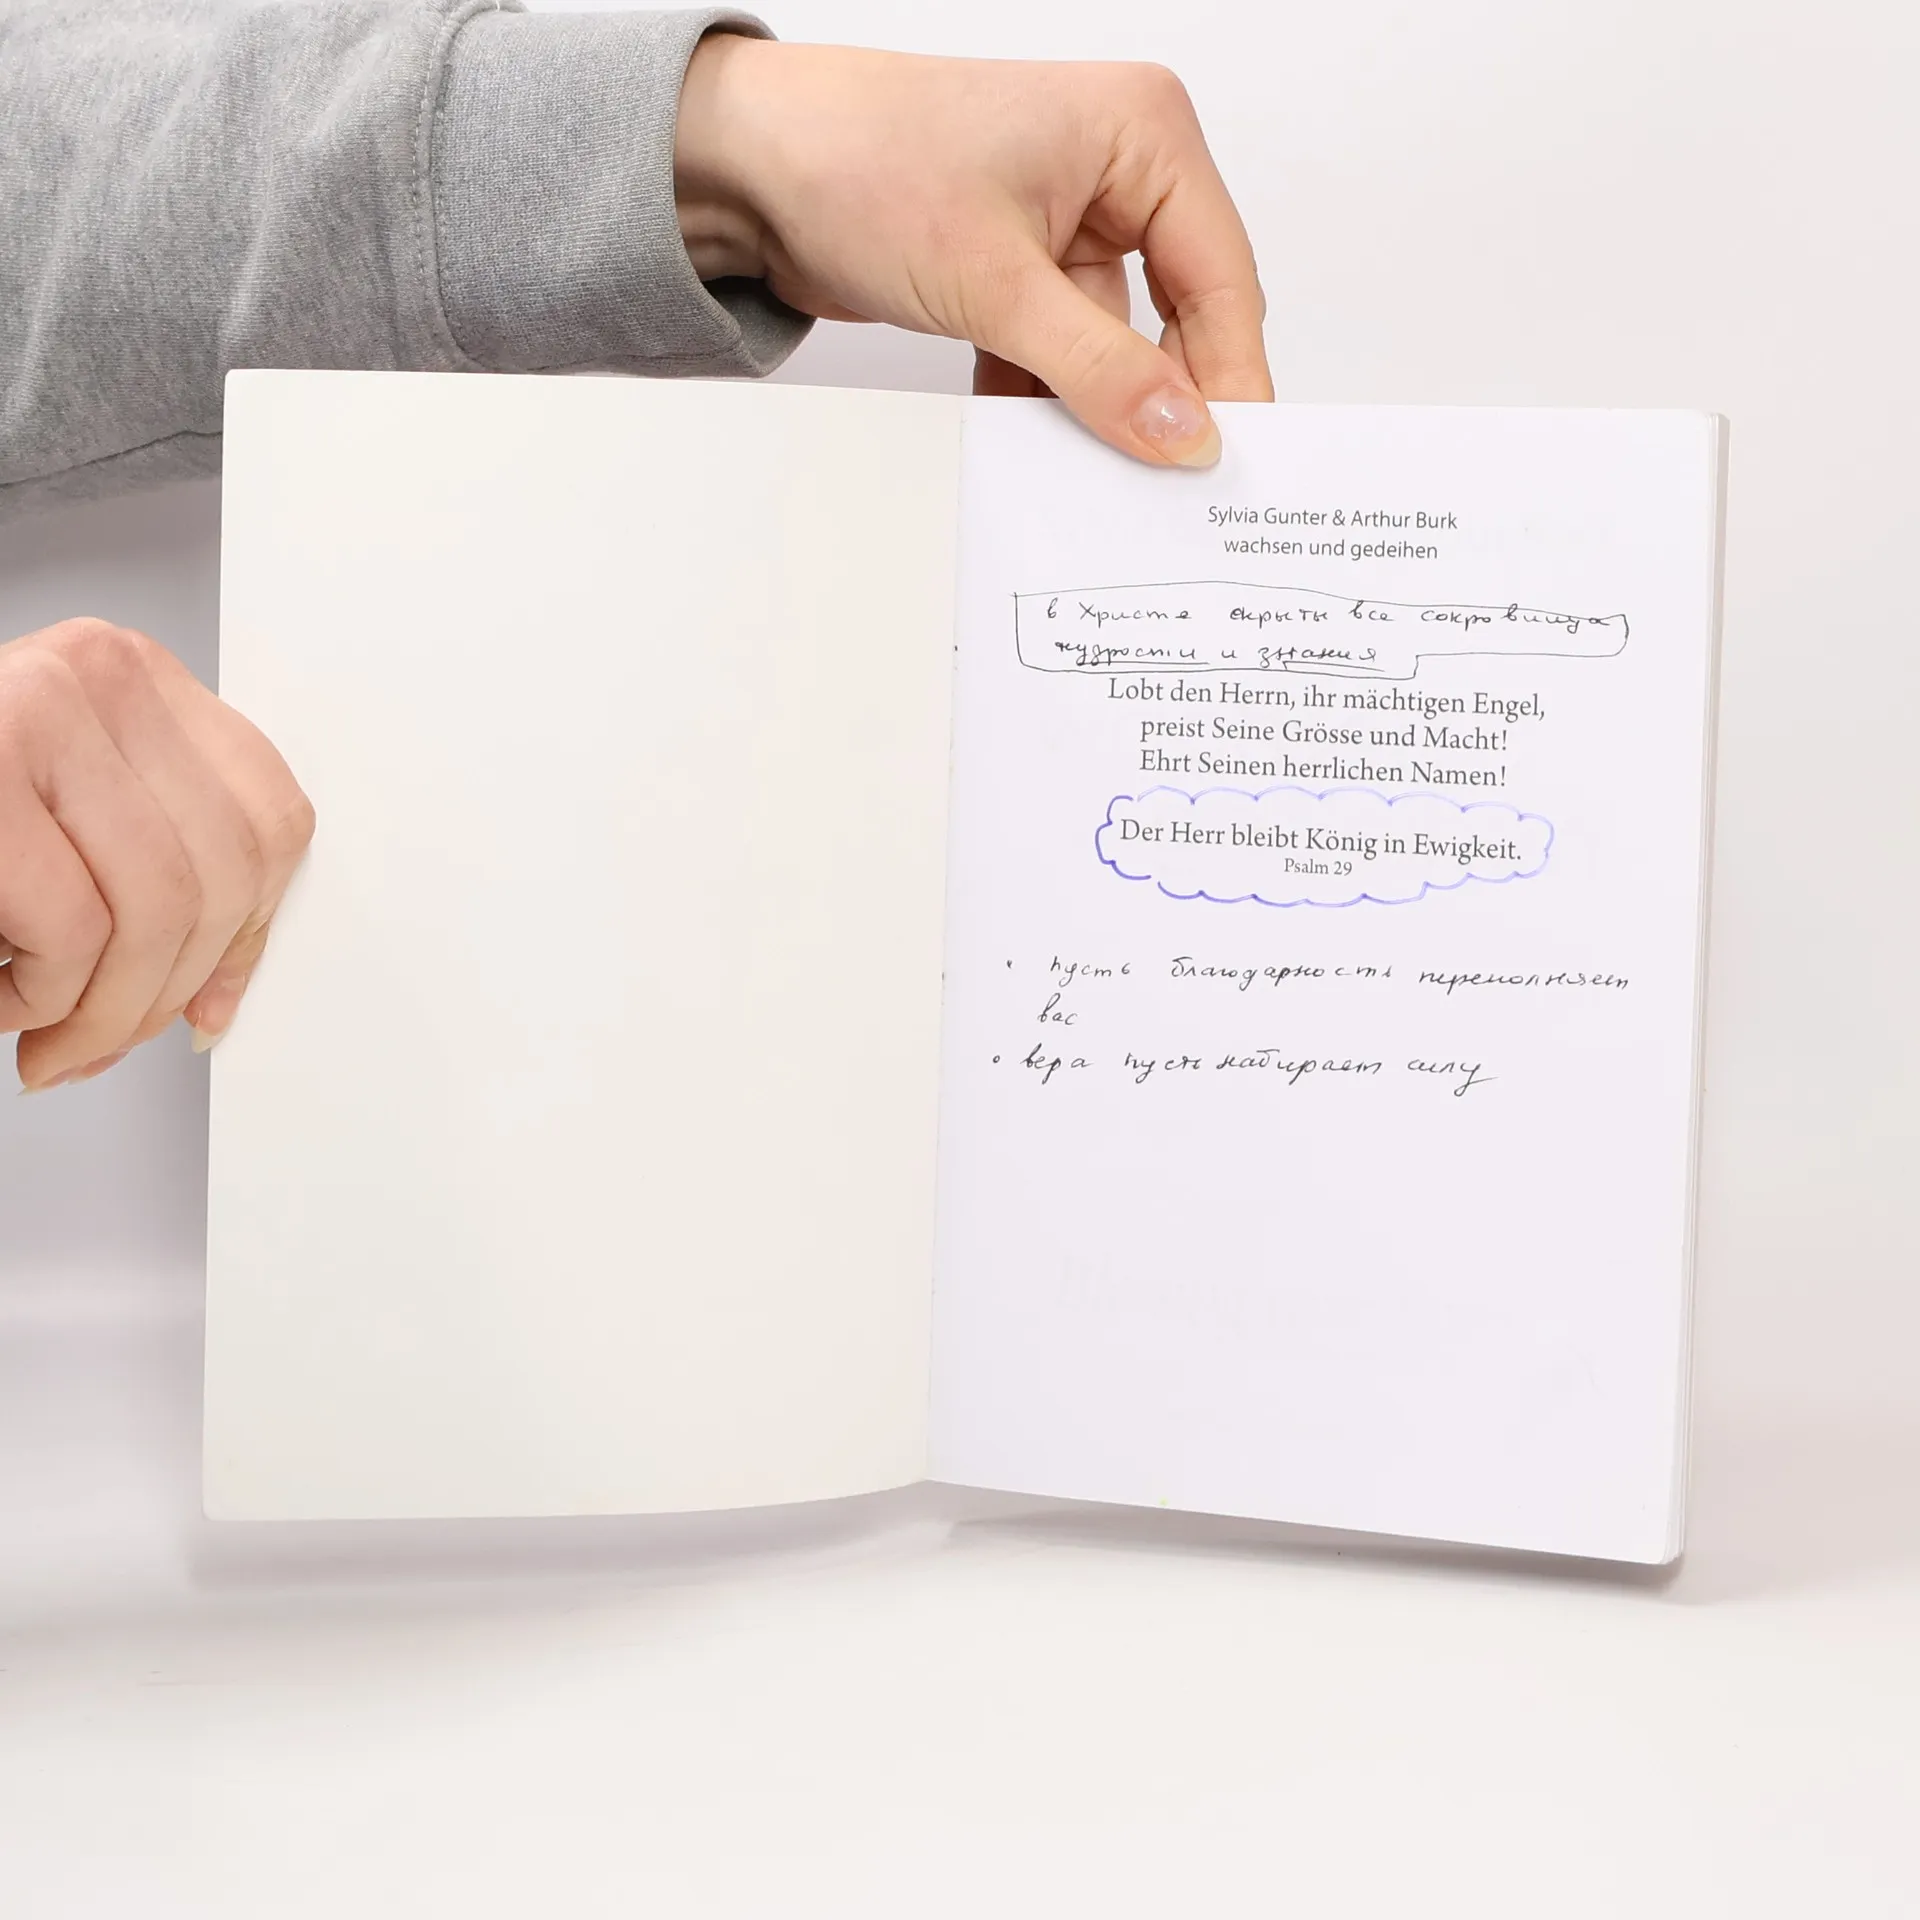 Sylvia Gunter & Arthur Burk
wachsen und gedeihen
в Христе скрыты все сокровища
мудрости и знания
Lobt den Herrn, ihr mächtigen Engel,
preist Seine Grösse und Macht!
Ehrt Seinen herrlichen Namen!
Der Herr bleibt König in Ewigkeit.
Psalm 29
• пусть благодарность переполняет
вас
• вера пусть набирает силу